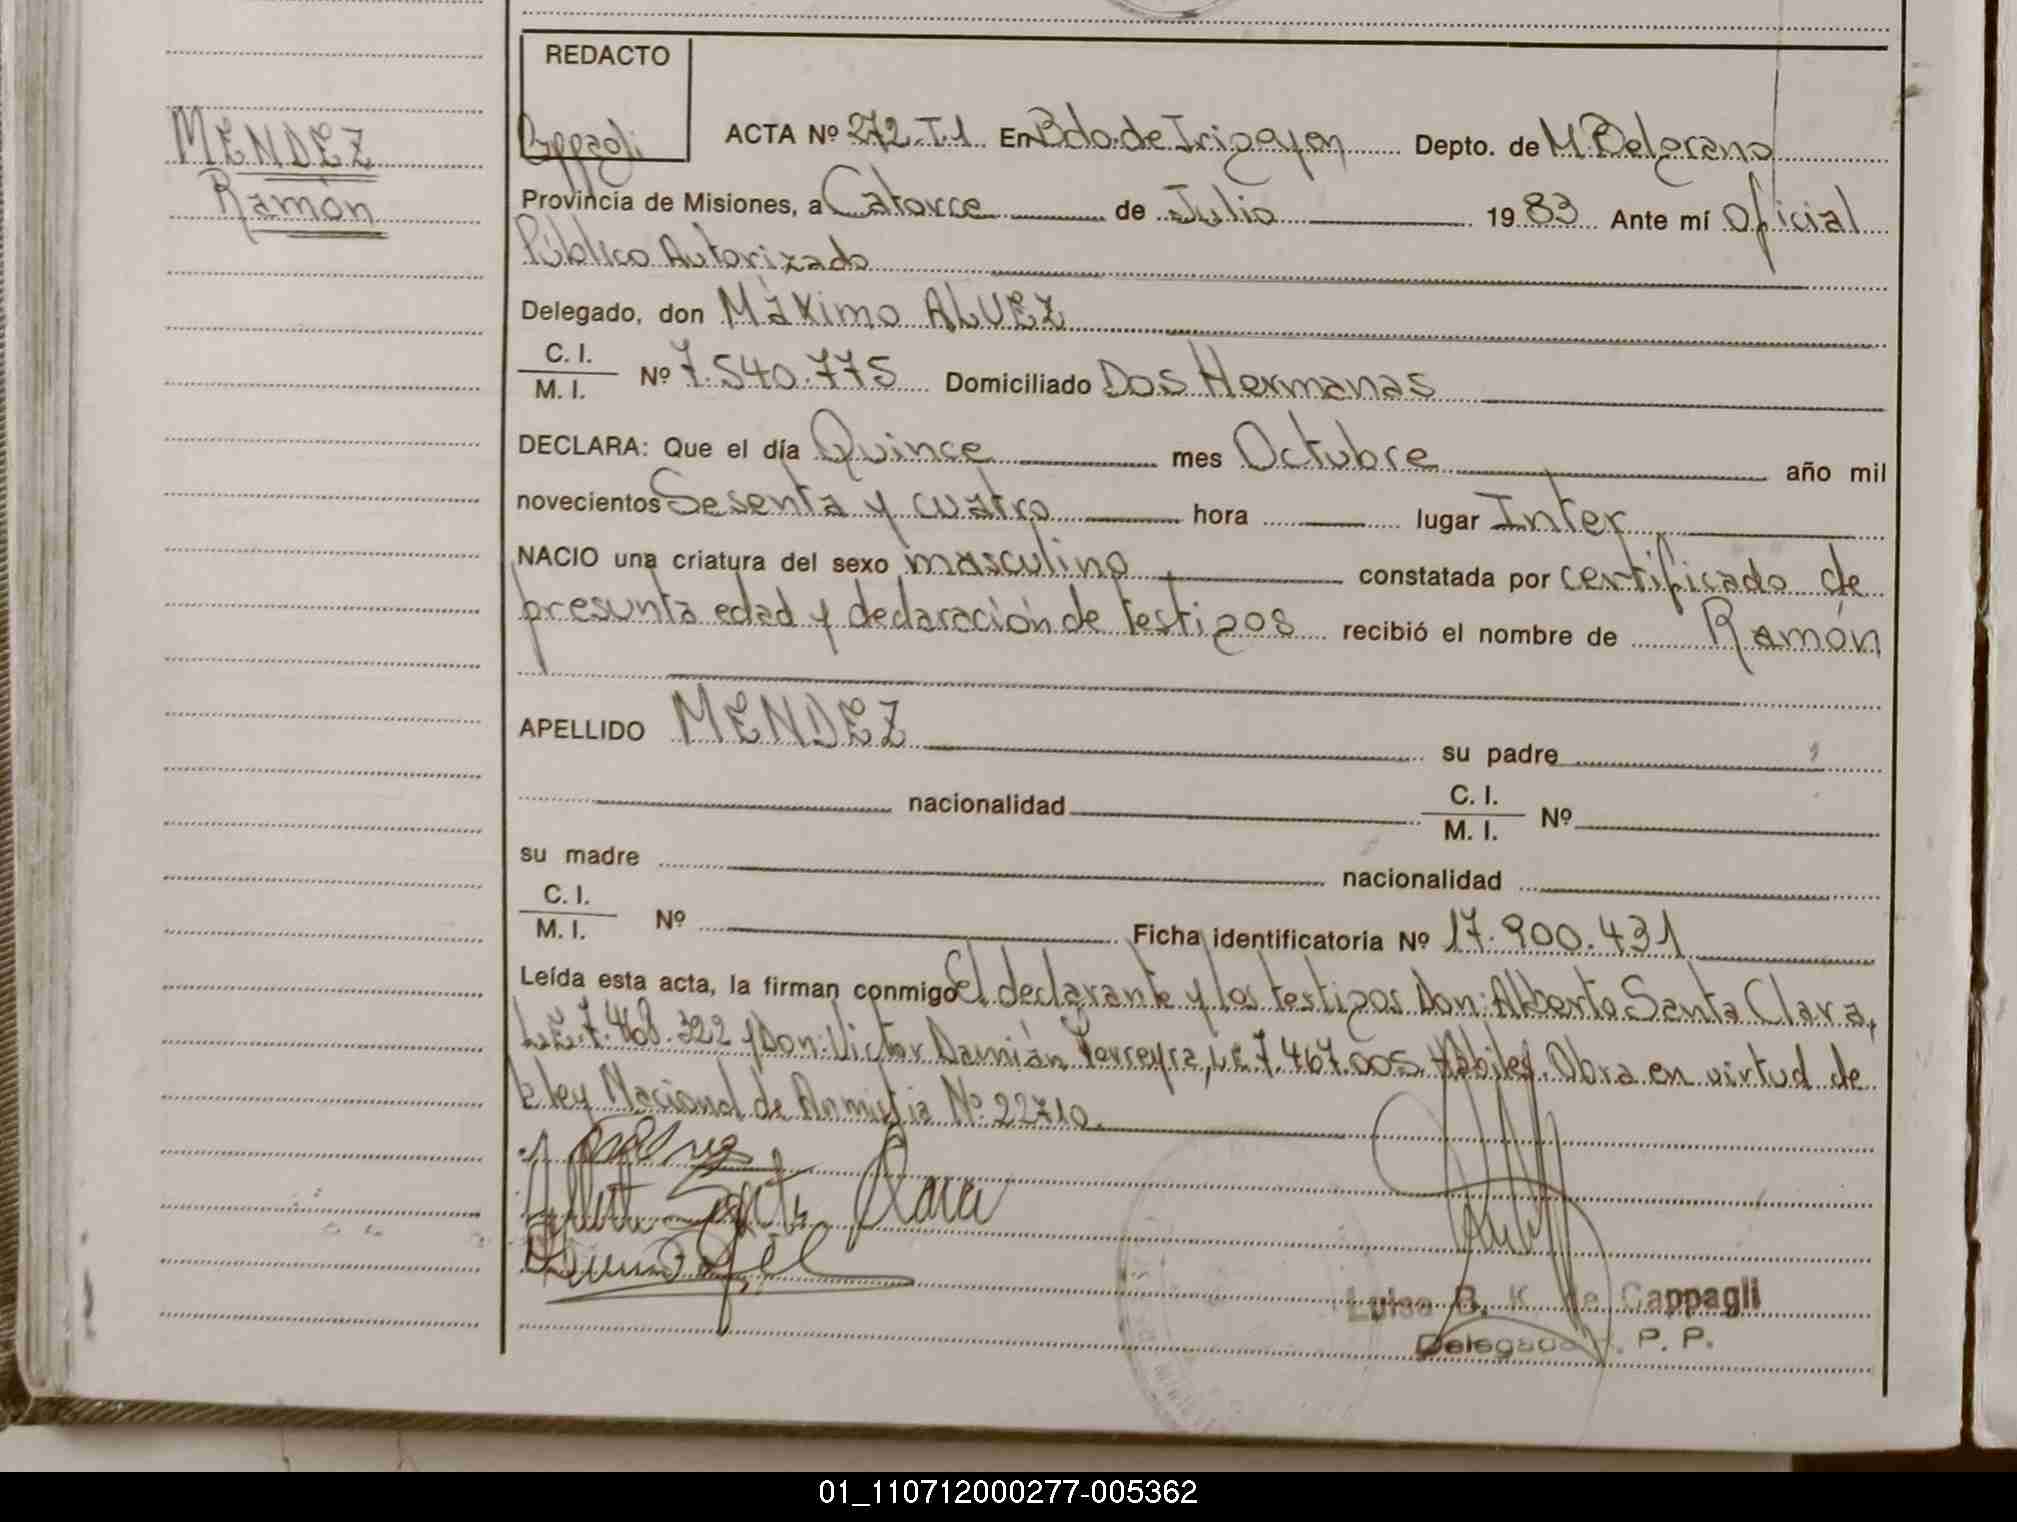 REDACTO
MENDEZ
Ramón
Cappagli
ACTA Nº 272.T.1 En Bdo. de Irigoyen Depto. de M. Belgrano
Provincia de Misiones, a Catorce de Julio 1983 Ante mí Oficial
Público Autorizado
Delegado, don Máximo ALVEZ
C. I.
M. I. Nº 7.540.775 Domiciliado Dos Hermanas
DECLARA: Que el día Quince mes Octubre año mil
novecientos Sesenta y cuatro hora lugar Inter
NACIO una criatura del sexo masculino constatada por certificado de
presunta edad y declaración de testigos recibió el nombre de Ramón
APELLIDO MENDEZ su padre
nacionalidad C. I.
M. I. Nº
su madre nacionalidad
C. I.
M. I. Nº Ficha identificatoria Nº 17.900.431
Leída esta acta, la firman conmigo El declarante y los testigos Don: Alberto Santa Clara,
L.E. 7.468.322 y Don: Victor Damián Ferreyra, L.E. 7.467.005. Hábiles. Obra en virtud de
la ley Nacional de Amnistia Nº 22710.
Santa Clara
Luisa B. K. de Cappagli
Delegada R. P. P.
01_110712000277-005362